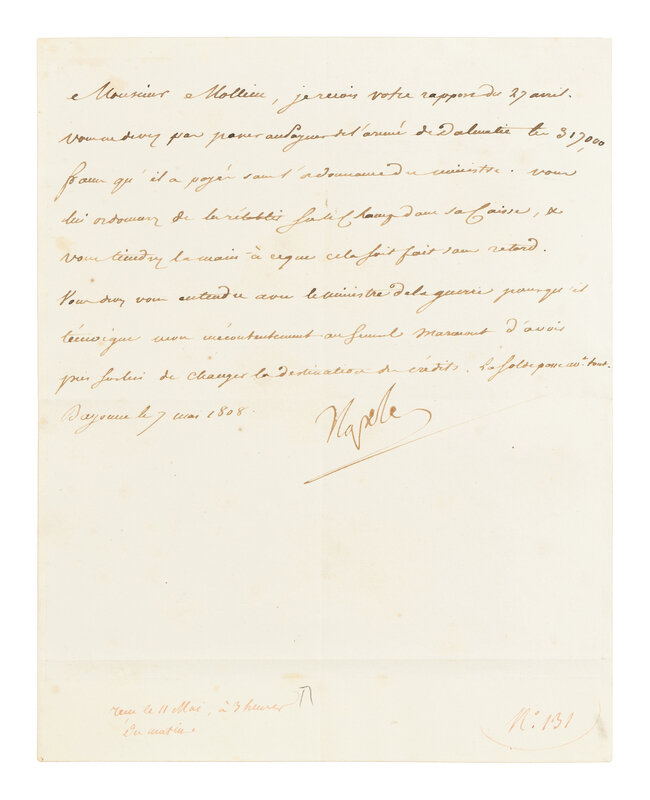 Monsieur Mollien, je recois votre rapport du 27 avril.
vous ne devez pas passer au Payeur de l'armée de Dalmatie les 317,000
francs qu'il a payés sans l'ordonnance du ministre. vous
lui ordonnerez de les rétablir sur le Champ dans sa Caisse, &
vous tiendrez la main à ce que cela soit fait sans retard.
Vous devez vous entendre avec le ministre de la guerre pour qu'il
témoigne mon mécontentement au General Marmont d'avoir
pris sur lui de changer la destination des crédits. La solde passe av.t tout.
Bayonne le 7 mai 1808.
Napole
reçu le 11 Mai, à 3 heures
du matin
N.o 131